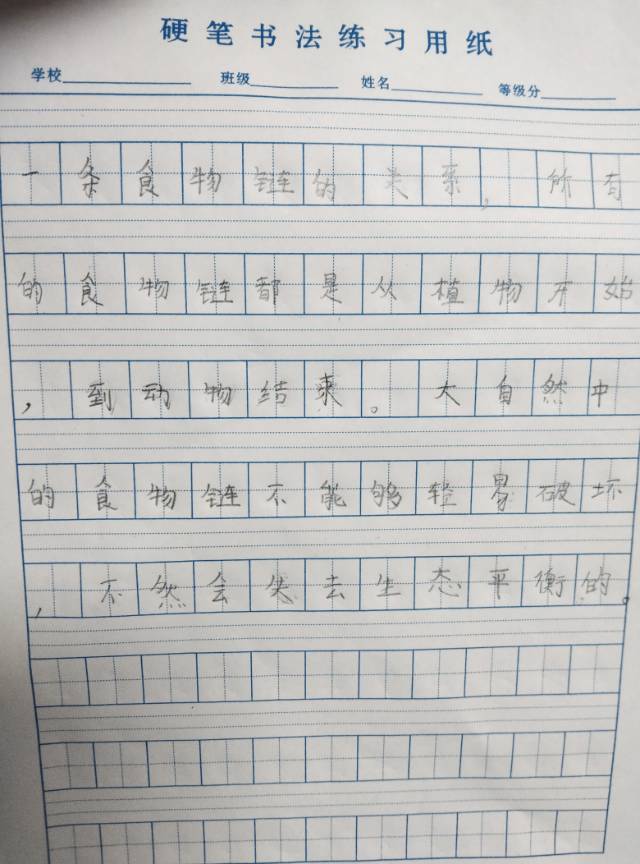 硬笔书法练习用纸
学校 班级 姓名 等级分
一条食物链的关系，所有
的食物链都是从植物开始
，到动物结束。大自然中
的食物链不能够轻易破坏
，不然会失去生态平衡的。